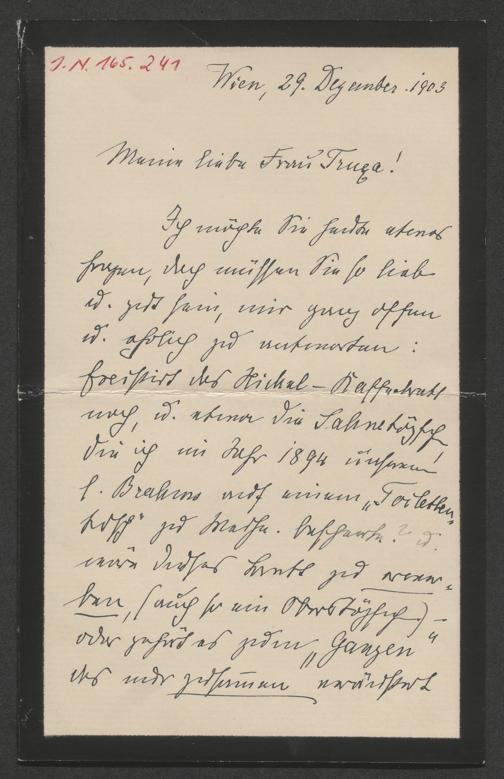 J.N. 165.241
Wien, 29. Dezember 1903
Meine liebe Frau Truxa!
Ich möchte Sie heute etwas
fragen, doch müssen Sie so lieb
u. gut sein, mir ganz offen
u. ehrlich zu antworten:
Existirt das Nickel-Kaffeebrett
noch, u. etwa die
die ich im Jahr 1894 unserem
l. Brahms auf einem „Toiletten-
tisch" zu Weihn. bescherte? u.
wäre dieses Brett zu erwer-
ben, (auch so ein Obers) –
oder gehört es zum „Ganzen"
das nur zusammen veräußert